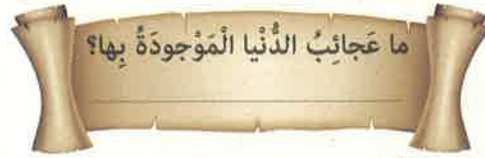 ما عَجائِبُ الدُّنْيا الْمَوْجودَةُ بِها؟